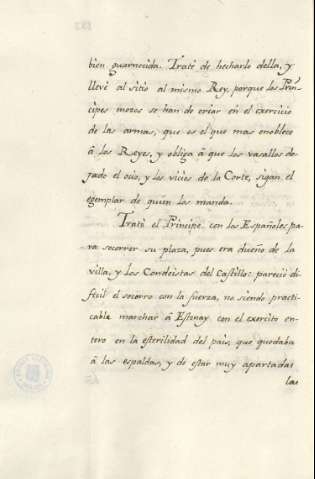 bien guarnecida. Trató de hecharle della, y
llevó al sitio al mismo Rey, porque los Prin-
cipes mozos se han de criar en el exercicio
de las armas, que es el que mas enoblece
á los Reyes, y obliga á que los vasallos de-
jado el ocio, y los vicios de la Corte, sigan el
egemplar de quien los manda.
Trató el Principe con los Españoles pa-
ra socorrer su plaza, pues era dueño de la
villa, y los Condeistas del Castillo: pareció di-
ficil el socorro con la fuerza, no siendo practi-
cable marchar á Estenay con el exercito en-
tero en la esterilidad del pais, que quedaba
á las espaldas, y de estar muy apartadas
las